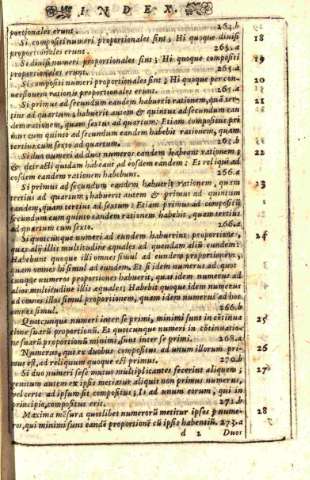 INDEX.
portionales erunt. 264.b
Si compositi numeri proportionales sint; Hi quoque diuisi 18
proportionales erunt. 265.a
Si diuisi numeri proportionales sint; Hi quoque compositi 19
proportionales erunt. 265.a
Si compositi numeri proportionales sint; Hi quoque per con- 20
uersionem rationis proportionales erunt. 265.a
Si primus ad secundum eandem habuerit rationem, quã ter- 21
tius ad quartum; habuerit autem & quintus ad secundum ean
dem rationem, quam sextus ad quartum: Etiam compositus pri-
mus cum quinto ad secundum eandem habebit rationem, quam
tertius cum sexto ad quartum. 265.b
Si duo numeri ad duos numeros eandem habeant rationem, 22
& detracti quidam habeant ad eosdem eandem: Et reliqui ad
eosdem eandem rationem habebunt. 256.a
Si primus ad secundum eandem habuerit rationem, quam 23
tertius ad quartum; habuerit autem & primus ad quintum
eandem, quam tertius ad sextum: Etiam primus ad compositũ
secundum cum quinto eandem rationem habebit, quam tertius
ad quartum cum sexto. 266.a
Si quotcunque numeri ad eundem habuerint proportiones, 24
quas alij illis multitudine æquales ad quendam alium eundem:
Habebunt quoque illi omnes simul ad eundem proportionem,
quam omnes hi simul ad eundem. Et si idem numerus ad quot
cunque numeros proportiones habuerit, quas idem numerus ad
alios multitudine illis æquales; Habebit quoque idem numerus
ad omnes illos simul proportionem, quam idem numerus ad hos
omnes simul. 266.b
Quotcunque numeri inter se primi, minimi sunt in cõtinua 25
tione suarũ proportionũ. Et quotcunque numeri in cõtinuatio-
ne suarũ proportionũ minimi, sunt inter se primi. 268.a
Numerus, qui ex duobus compositus ad unum illorum pri- 26
mus est, ad reliquum quoque est primus. 270.b
Si duo numeri sese mutuo multiplicantes fecerint aliquem; 27
genitum autem ex ipsis metiatur aliquis non primus numerus,
vel certe ad ipsum sit compositus; Is ad unum eorum, qui in
principio, compositus erit. 271.b
Maxima mẽsura quotlibet numerorũ metitur ipsos p nume- 28
ros, qui minimi sunt eandẽ proportionẽ cũ ipsis habentiũ. 273.a
d 2 Duos